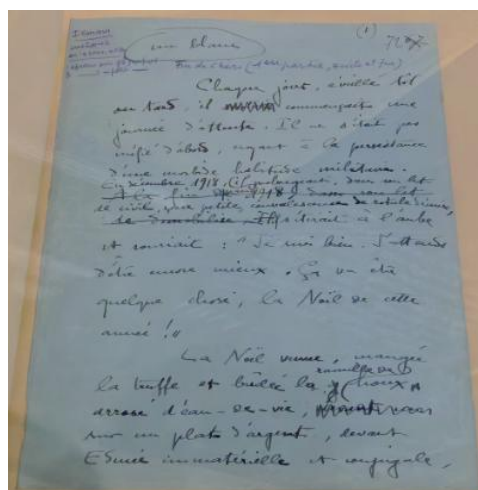 (1)
en blanc
Fin de Chéri (1ère partie, suite et fin)
Chaque jour, éveillé tôt
ou tard, il commençait une
journée d'attente. Il ne s'était pas
méfié d'abord, croyant à la persistance
d'une morbide habitude militaire.
En décembre 1918, il prolongeait, dans son lit
de civil, une petite convalescence de rotule démise,
Il s'étirait à l'aube
et souriait : "Je suis bien. J'attends
d'être encore mieux. Ça va être
quelque chose, la Noël de cette
année !"
La Noël venue, mangée
la truffe et brûlée la ramille de houx
arrosé d'eau-de-vie,
sur un plat d'argent, devant
Edmée immatérielle et conjugale,